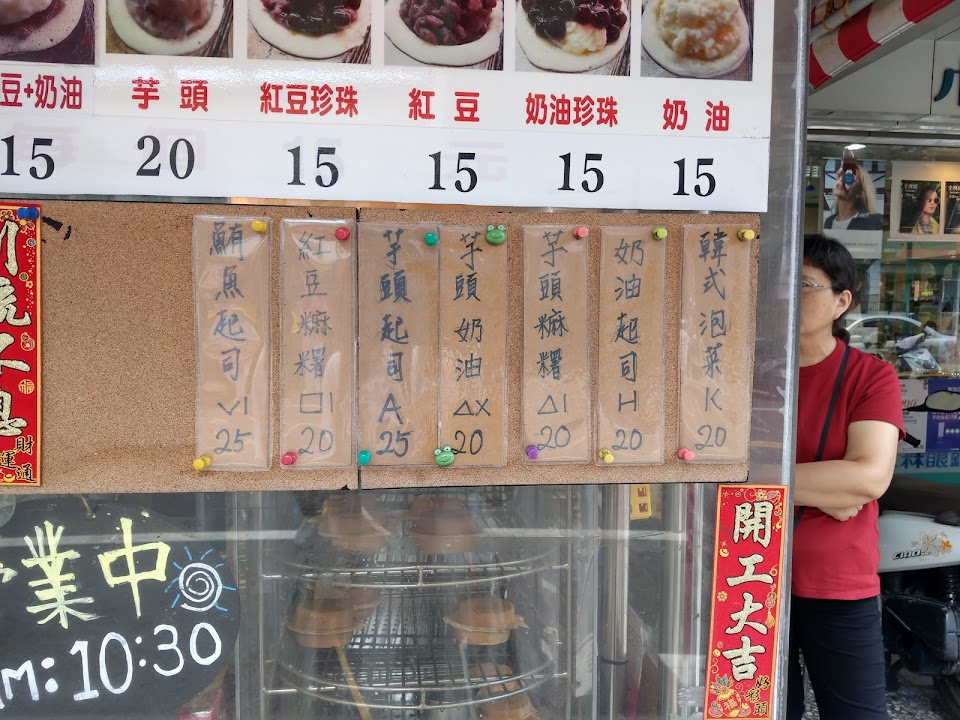 豆+奶油
芋頭
紅豆珍珠
紅豆
奶油珍珠
奶油
15
20
15
15
15
15
鮪魚起司 VI 25
紅豆麻糬 口I 20
芋頭起司 A 25
芋頭奶油 △X 20
芋頭麻糬 △I 20
奶油起司 H 20
韓式泡菜 K 20
財運通
業中
M:10:30
開工大吉
好彩頭